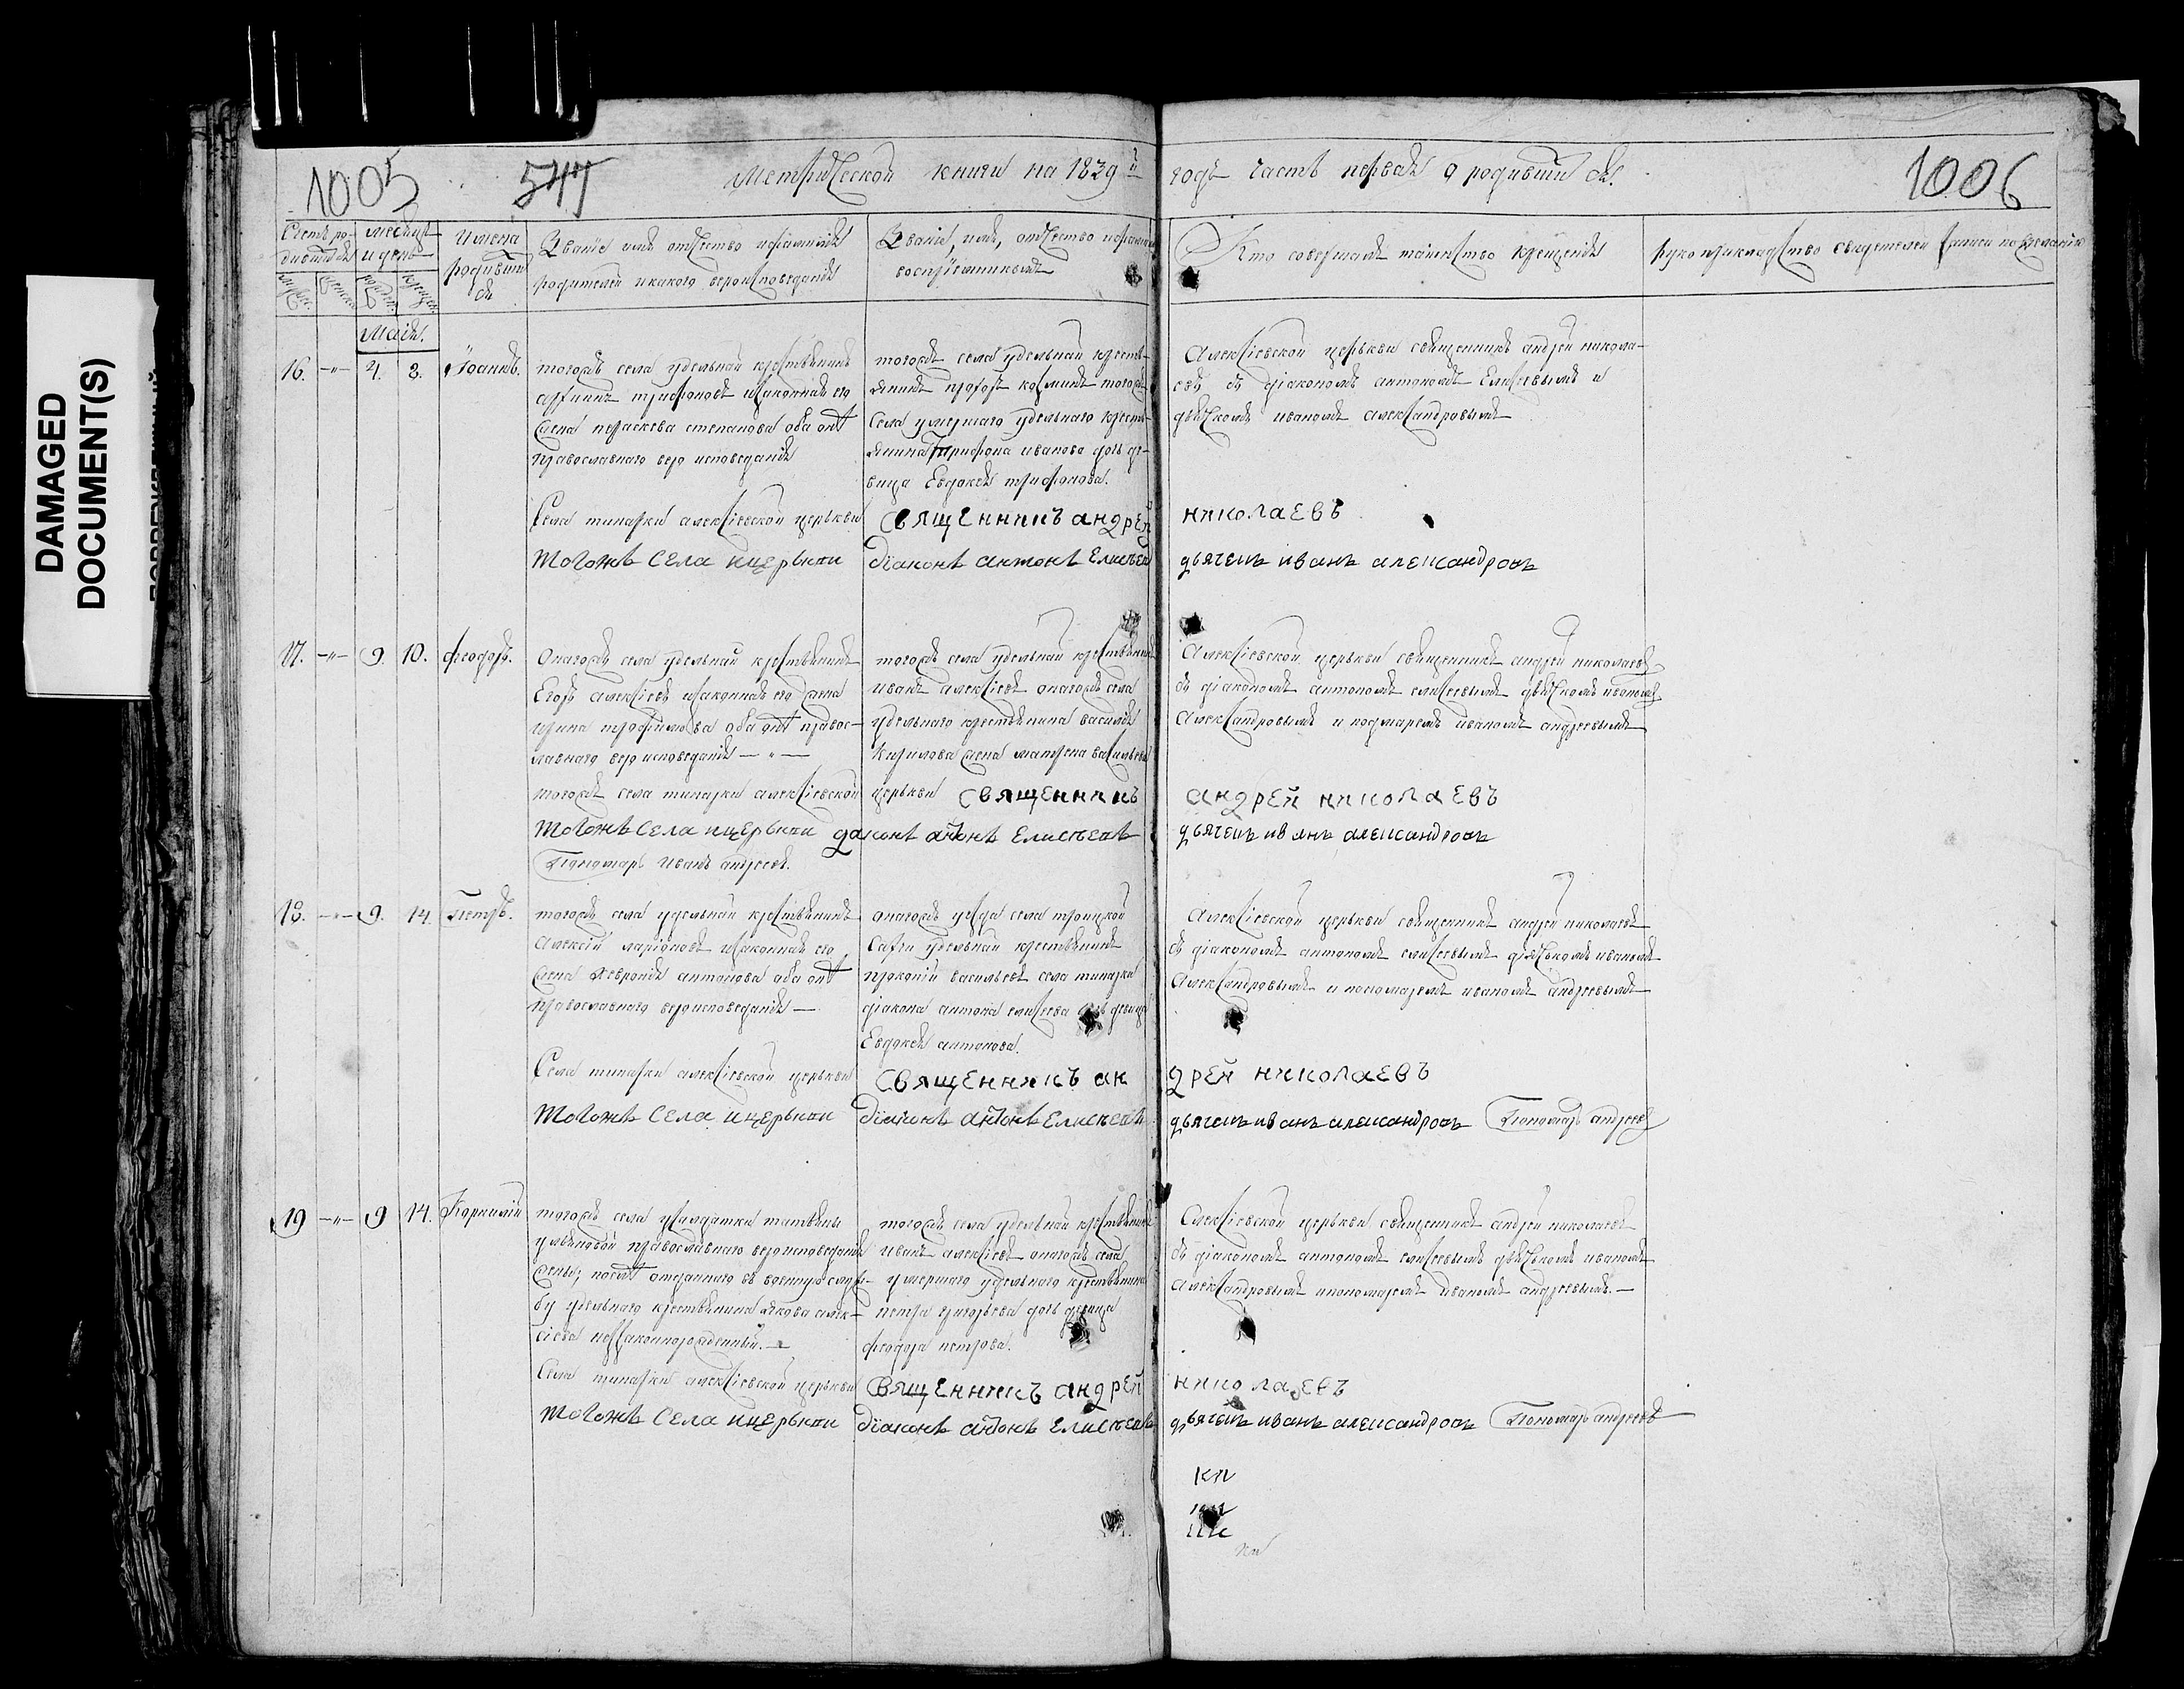 DAMAGED
DOCUMENT(S)
1005
547
Метрической книги на 1839й
годъ часть первая о родившихся.
1006
Счетъ ро-
дившихся
Месяцъ
и день
Имена
родивших
ся
Званіе имя отчество и фамилія
родителей и какого вероисповеданія
Званіе, имя, отчество и фамилія
воспріемниковъ
Кто совершалъ таинство крещенія
Рукоприкладство свидетелей записи по желанію
Маія.
16. -"- 4. 8. Іоаннъ.
тогожъ села удельный крестьянинъ
трифоновъ изаконная его
жена параскева степанова оба
православнаго вероисповеданія
тогожъ села удельный кресть-
янинъ козминъ тогожъ
села умершаго удельнаго кресть-
янина Трифона иванова дочь де-
вица Евдокея трифонова.
Алексіевской церькви священникъ андрей никола-
евъ съ діакономъ антономъ Елисеевымъ и
дьячкомъ иваномъ александровымъ
Села алексіевской церькви священникъ андрей николаевъ
тогожъ села ицерькви діаконъ антонъ Елисеевъ дьячекъ иванъ александровъ
17. -"- 9. 10. феодоръ.
Онагожъ села удельный крестьянинъ
Егоръ алексіевъ изаконная его жена
ирина трофимова оба правос-
лавнаго вероисповеданія -"-
тогожъ села удельный крестьянинъ
иванъ алексіевъ онагожъ села
удельнаго крестьянина василія
Кирилова жена матрена васильева
Алексіевской церькви священникъ андрей николаевъ
съ діакономъ антономъ елисеевымъ дьячкомъ иваномъ
александровымъ и понмаремъ иваномъ андреевымъ
тогожъ села алексіевской церькви священникъ андрей николаевъ
тогожъ села ицерькви даконъ антонъ Елисеевъ дьячекъ иванъ александровъ
Пономарь Иванъ андреевъ.
18. -"- 9. 14. Петръ.
тогожъ села удельный крестьянинъ
алексій ларіоновъ изаконная его
жена февронія антонова оба
православнаго вероисповеданія —
онагожъ уезда села троицкой
удельный крестьянинъ
прокопій васильевъ села
діакона антона елисеева дочь девица
Евдокея антонова.
Алексіевской церькви священникъ андрей николаевъ
съ діакономъ антономъ елисеевымъ дьячькомъ иваномъ
александровымъ и пономаремъ иваномъ андреевымъ
Села алексіевской церькви священникъ андрей николаевъ
тогожъ села ицерькви діаконъ антонъ Елисеевъ дьячекъ иванъ александровъ Пономарь андреевъ
19 -"- 9 14. Корнилій
тогожъ села усалдатки татьяны
ульяновой православнаго вероисповеданія
отданнаго въ военную служ-
бу удельнаго крестьянина якова алек-
сіева незаконнорожденный. —
тогожъ села удельный крестьянинъ
иванъ алексіевъ онагожъ села
умершаго удельнаго крестьянина
петра григорьева дочь девица
феодора петрова.
Алексіевской церькви священникъ андрей николаевъ
съ діакономъ антономъ елисеевымъ дьячькомъ иваномъ
александровымъ ипономаремъ иваномъ андреевымъ. —
Села алексіевской церькви священникъ андрей николаевъ
тогожъ села ицерькви діаконъ антонъ Елисеевъ дьячекъ иванъ александровъ Пономарь андреевъ